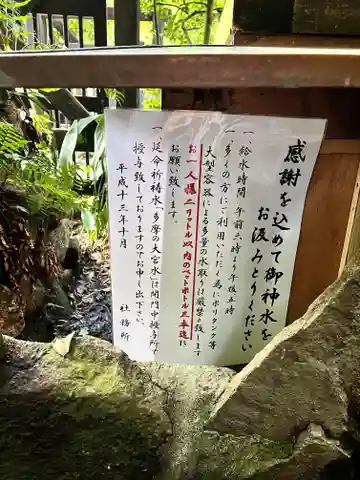 感謝を込めて御神水を
お汲みとりください
一、給水時間 午前三時より午後五時
一、多くの方にご利用いただく為にポリタンク等
大型容器による多量の水取りは厳禁と致します
お一人様二リットル以内のペットボトル三本迄に
お願い致します。
一、延命祈祷水「多摩の大宮水」は開門中授与所で
授与致しておりますのでお申し出下さい。
平成十三年十月
社務所